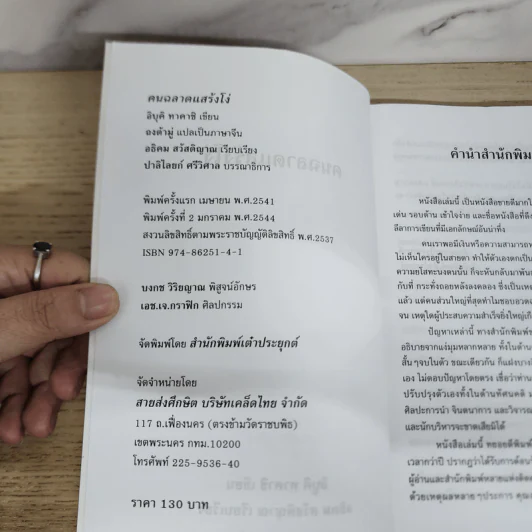 คนฉลาดแสร้งโง่
อิบุคิ ทาคาชิ เขียน
ถงต้าหู่ แปลเป็นภาษาจีน
อธิคม สวัสดิญาณ เรียบเรียง
ปาลิไลยก์ ศรีวิศาล บรรณาธิการ
พิมพ์ครั้งแรก เมษายน พ.ศ.2541
พิมพ์ครั้งที่ 2 มกราคม พ.ศ.2544
สงวนลิขสิทธิ์ตามพระราชบัญญัติลิขสิทธิ์ พ.ศ.2537
ISBN 974-86251-4-1
บงกช วิริยญาณ พิสูจน์อักษร
เอช.เจ.กราฟิก ศิลปกรรม
จัดพิมพ์โดย สำนักพิมพ์เต๋าประยุกต์
จัดจำหน่ายโดย
สายส่งศึกษิต บริษัทเคล็ดไทย จำกัด
117 ถ.เฟื่องนคร (ตรงข้ามวัดราชบพิธ)
เขตพระนคร กทม.10200
โทรศัพท์ 225-9536-40
ราคา 130 บาท
คำนำสำนักพิม
หนังสือเล่มนี้ เป็นหนังสือขายดีมาก
เด่น รอบด้าน เข้าใจง่าย และชื่อหนังสือที่ดึง
ลีลาการเขียนที่มีเอกลักษณ์อันน่าทึ่ง
คนเราพอมีเงินหรือความสามารถห
ไม่เห็นใครอยู่ในสายตา ทำให้ตัวเองตกเป็น
ความยโสทะนงตนนั้น ก็จะหันกลับมาพัน
กับที่ กระทั่งถอยหลังลงคลอง ซึ่งเป็นเหตุ
แล้ว แต่คนส่วนใหญ่ที่สุดทำไมชอบอวด
จน เหตุใดผู้ประสบความสำเร็จยิ่งใหญ่
ปัญหาเหล่านี้ ทางสำนักพิมพ์
อธิบายจากแง่มุมหลากหลาย ทั้งในด้าน
สั้นๆจบในตัว ขณะเดียวกัน ก็แฝงบาง
เอง ไม่ตอบปัญหาโดยตรง เชื่อว่าท่าน
ปรับปรุงตัวเองทั้งในด้านทัศนคติ
ศิลปะการนำ จินตนาการ และวิจารณ
และนักบริหารจะขาดเสียมิได้
หนังสือเล่มนี้ ทยอยตีพิมพ์
เวลากว่าปี ปรากฏว่าได้รับการต้อน
ผู้อ่านและสำนักพิมพ์หลายแห่งติดต่อ
ด้วยเหตุผลหลายๆประการ คุณ